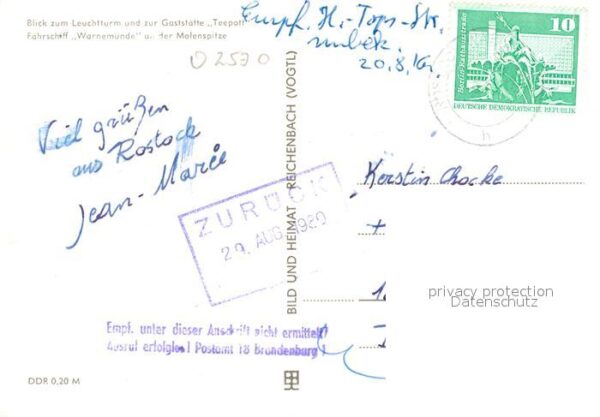 Blick zum Leuchtturm und zur Gaststätte „Teepott"
Fährschiff „Warnemünde" an der Molenspitze
Empf. H.-
unbek.
20.8. Kr.
D 2570
10
Berlin · Rathausstraße
DEUTSCHE DEMOKRATISCHE REPUBLIK
Viel grüßen
aus Rostock
Jean-Marie
BILD UND HEIMAT REICHENBACH (VOGTL)
ZURÜCK
29. AUG. 1980
Kerstin
privacy protection
Datenschutz
Empf. unter dieser Anschrift nicht ermittelt
Ausruf erfolglos! Postamt 18 Brandenburg 1
DDR 0,20 M